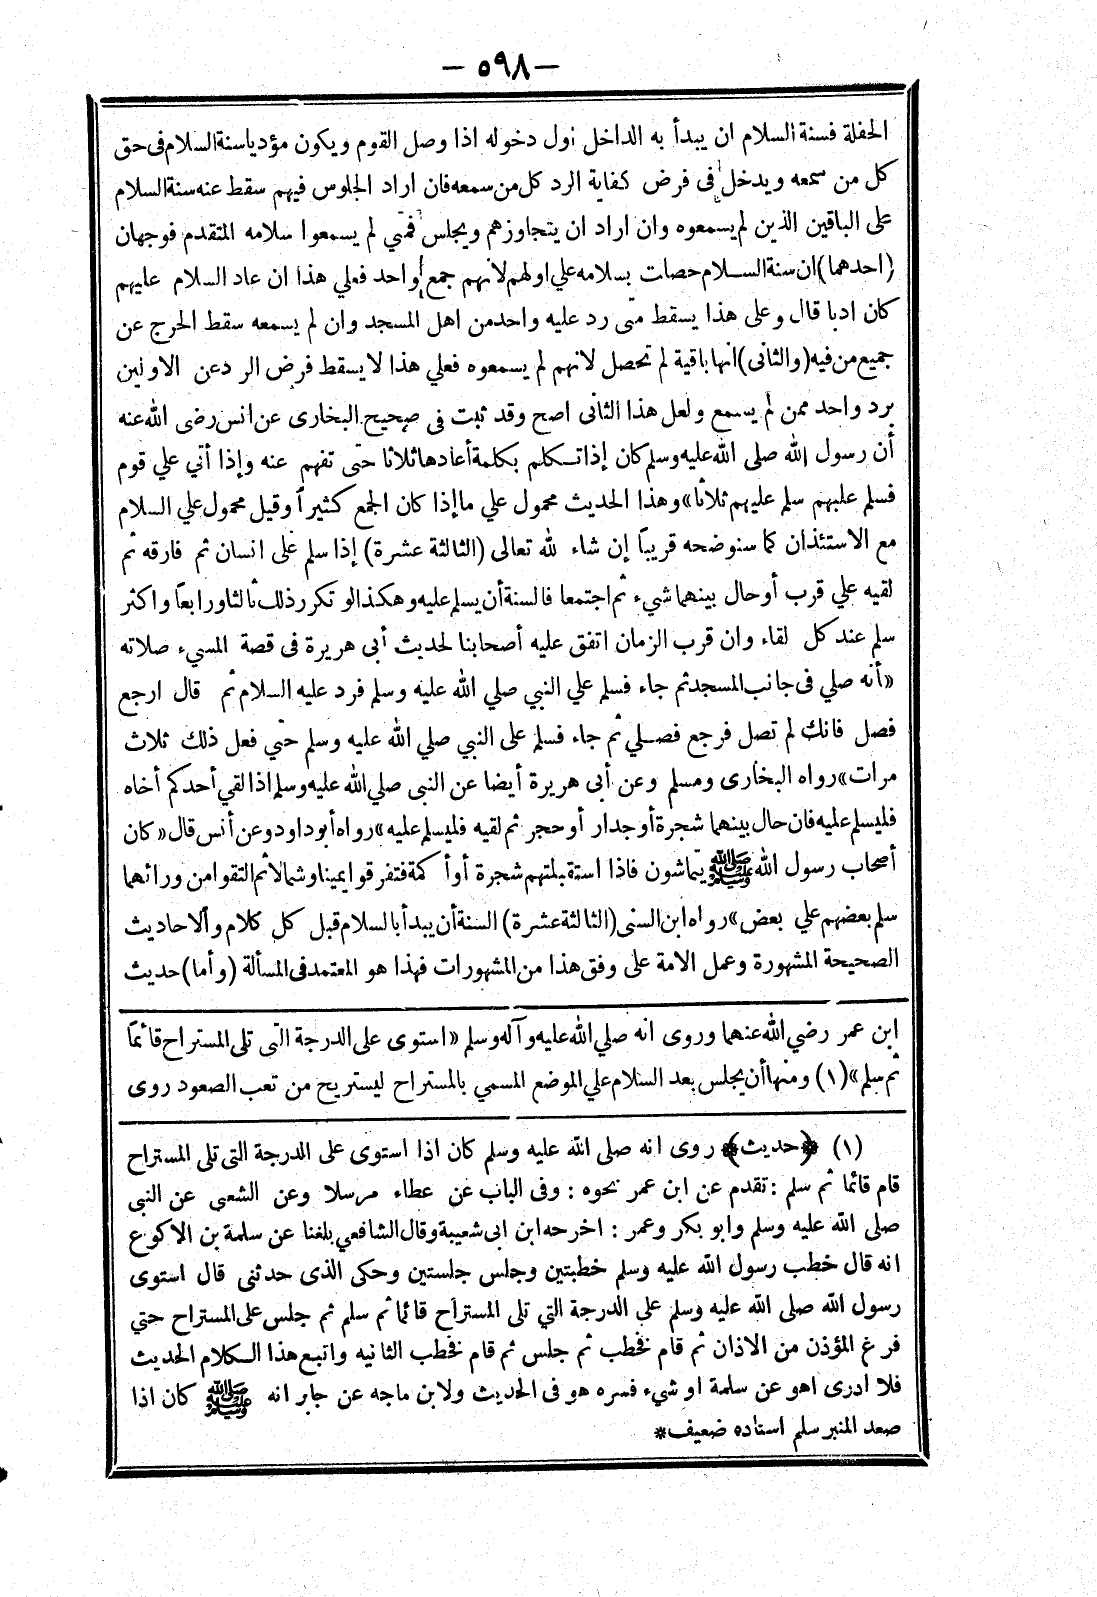 — ٥٩٨ —
الحفلة فسنة السلام ان يبدأ به الداخل اول دخوله اذا وصل القوم ويكون مؤديا سنة السلام فى حق
كل من سمعه ويدخل فى فرض كفاية الرد كل من سمعه فان اراد الجلوس فيهم سقط عنه سنة السلام
على الباقين الذين لم يسمعوه وان اراد ان يتجاوزهم ويجلس فمتي لم يسمعوا سلامه المتقدم فوجهان
(احدهما) ان سنة السلام حصات بسلامه علي اولهم لانهم جمع واحد فعلي هذا ان عاد السلام عليهم
كان ادبا قال وعلى هذا يسقط متى رد عليه واحد من اهل المسجد وان لم يسمعه سقط الحرج عن
جميع من فيه (والثانى) انها باقية لم تحصل لانهم لم يسمعوه فعلي هذا لا يسقط فرض الرد عن الاولين
برد واحد ممن لم يسمع ولعل هذا الثانى اصح وقد ثبت فى صحيح البخارى عن انس رضى الله عنه
أن رسول الله صلى الله عليه وسلم كان إذا تكلم بكلمة أعادها ثلاثا حتى تفهم عنه وإذا أتي علي قوم
فسلم عليهم سلم عليهم ثلاثا» وهذا الحديث محمول علي ما إذا كان الجمع كثيراً وقيل محمول علي السلام
مع الاستئذان كما سنوضحه قريباً إن شاء لله تعالى (الثالثة عشرة) إذا سلم على انسان ثم فارقه ثم
لقيه علي قرب أو حال بينهما شيء ثم اجتمعا فالسنة أن يسلم عليه وهكذا لو تكرر ذلك ثالثا ورابعاً واكثر
سلم عند كل لقاء وان قرب الزمان اتفق عليه أصحابنا لحديث أبى هريرة فى قصة المسيء صلاته
«أنه صلي فى جانب المسجد ثم جاء فسلم علي النبي صلي الله عليه وسلم فرد عليه السلام ثم قال ارجع
فصل فانك لم تصل فرجع فصلي ثم جاء فسلم على النبي صلي الله عليه وسلم حتي فعل ذلك ثلاث
مرات» رواه البخارى ومسلم وعن أبى هريرة أيضا عن النبى صلي الله عليه وسلم اذا لقي أحدكم أخاه
فليسلم عليه فان حال بينهما شجرة أو جدار أو حجر ثم لقيه فليسلم عليه» رواه أبو داود وعن أنس قال «كان
أصحاب رسول الله ﷺ يتماشون فاذا استقبلتهم شجرة أو أكمة فتفرقوا يمينا وشمالا ثم التقوا من ورائهما
سلم بعضهم علي بعض» رواه ابن السنى (الثالثة عشرة) السنة أن يبدأ بالسلام قبل كل كلام والاحاديث
الصحيحة المشهورة وعمل الامة على وفق هذا من المشهورات فهذا هو المعتمد فى المسألة (وأما) حديث
ابن عمر رضي الله عنهما وروى انه صلي الله عليه وآله وسلم «استوى على الدرجة التى تلى المستراح قائماً
ثم سلم» (١) ومنها أن يجلس بعد السلام علي الموضع المسمي بالمستراح ليستريح من تعب الصعود روى
(١) ﴿حديث﴾ روى انه صلى الله عليه وسلم كان اذا استوى على الدرجة التى تلى المستراح
قام قائما ثم سلم : تقدم عن ابن عمر نحوه : وفى الباب عن عطاء مرسلا وعن الشعبى عن النبى
صلى الله عليه وسلم وابو بكر وعمر : اخرجه ابن ابى شعيبة وقال الشافعي بلغنا عن سلمة بن الاكوع
انه قال خطب رسول الله عليه وسلم خطبتين وجلس جلستين وحكى الذى حدثنى قال استوى
رسول الله صلى الله عليه وسلم علي الدرجة التي تلى المستراح قائما ثم سلم ثم جلس على المستراح حتي
فرغ المؤذن من الاذان ثم قام فخطب ثم جلس ثم قام فخطب الثانيه واتبع هذا الكلام الحديث
فلا ادرى اهو عن سلمة او شيء فسره هو فى الحديث ولابن ماجه عن جابر انه ﷺ كان اذا
صعد المنبر سلم اسناده ضعيف*